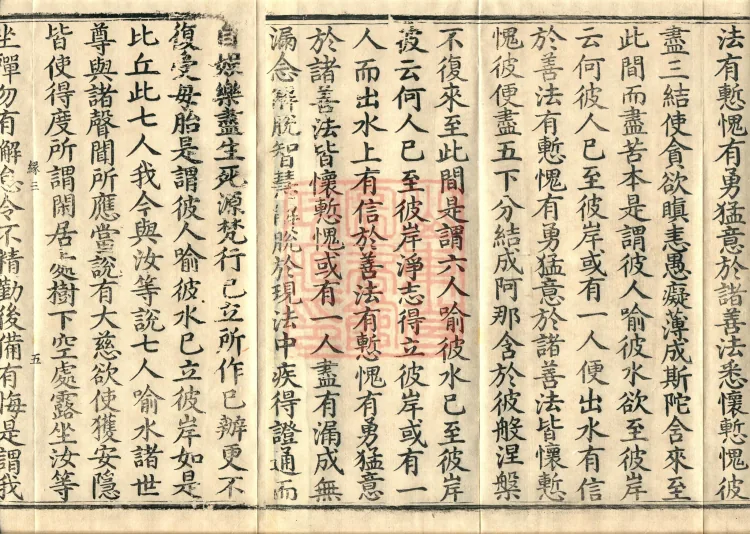 法有慙愧有勇猛意於諸善法悉懷慙愧彼
盡三結使貪欲瞋恚愚癡薄成斯陀含來至
此間而盡苦本是謂彼人喻彼水欲至彼岸
云何彼人已至彼岸或有一人便出水有信
於善法有慙愧有勇猛意於諸善法皆懷慙
愧彼便盡五下分結成阿那含於彼般涅槃
不復來至此間是謂六人喻彼水已至彼岸
彼云何人已至彼岸淨志得立彼岸或有一
人而出水上有信於善法有慙愧有勇猛意
於諸善法皆懷慙愧或有一人盡有漏成無
漏念解脫智慧解脫於現法中疾得證通而
自娛樂盡生死源梵行已立所作已辦更不
復受母胎是謂彼人喻彼水已立彼岸如是
比丘此七人我今與汝等說七人喻水諸世
尊與諸聲聞所應當說有大慈欲使獲安隱
皆使得度所謂閑居處樹下空處露坐汝等
緣三 五
坐禪勿有解怠令不精勤後備有悔是謂我